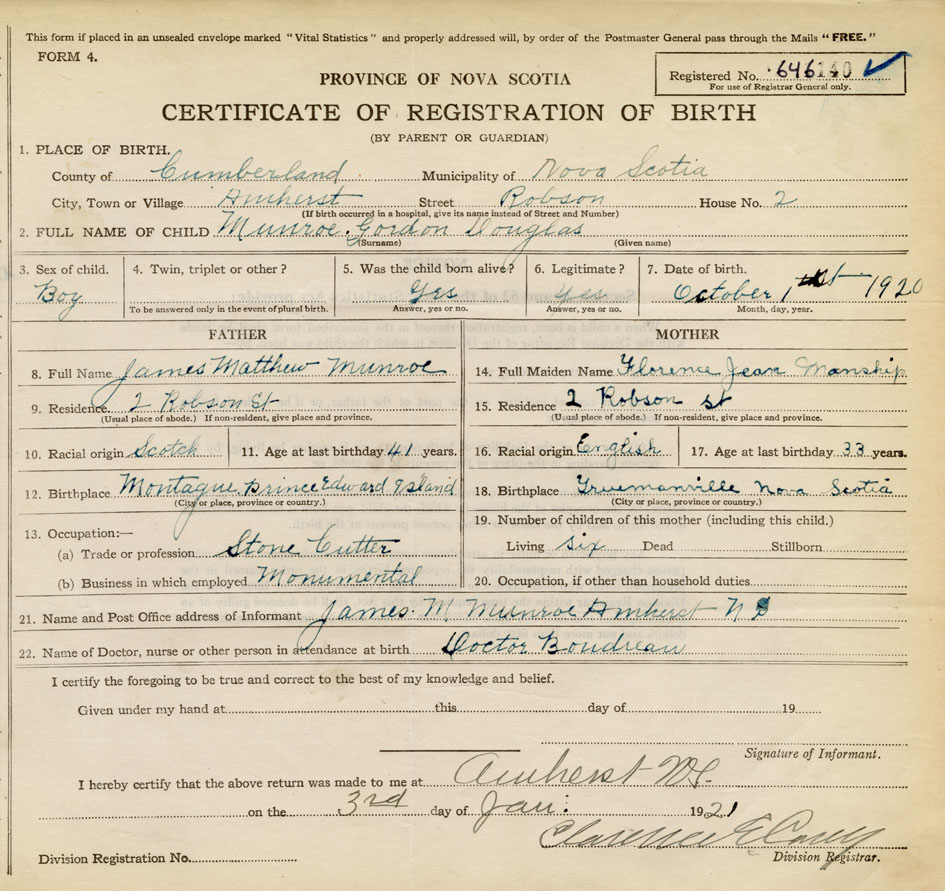 This form if placed in an unsealed envelope marked "Vital Statistics" and properly addressed will, by order of the Postmaster General pass through the Mails "FREE."
FORM 4.
PROVINCE OF NOVA SCOTIA
Registered No. 646140
For use of Registrar General only.
CERTIFICATE OF REGISTRATION OF BIRTH
(BY PARENT OR GUARDIAN)
1. PLACE OF BIRTH.
County of Cumberland Municipality of Nova Scotia
City, Town or Village Amherst Street Robson House No. 2
(If birth occurred in a hospital, give its name instead of Street and Number)
2. FULL NAME OF CHILD Munroe. Gordon Douglas
(Surname) (Given name)
3. Sex of child. 4. Twin, triplet or other? 5. Was the child born alive? 6. Legitimate? 7. Date of birth.
Boy Yes Yes October 1st 1920
To be answered only in the event of plural birth. Answer, yes or no. Answer, yes or no. Month, day, year.
FATHER MOTHER
8. Full Name James Matthew Munroe 14. Full Maiden Name Florence Jean Manship
9. Residence 2 Robson St 15. Residence 2 Robson st
(Usual place of abode.) If non-resident, give place and province. (Usual place of abode.) If non-resident, give place and province.
10. Racial origin Scotch 11. Age at last birthday 41 years. 16. Racial origin English 17. Age at last birthday 33 years.
12. Birthplace Montague Prince Edward Island 18. Birthplace Nova Scotia
(City or place, province or country.) (City or place, province or country.)
13. Occupation:— 19. Number of children of this mother (including this child.)
(a) Trade or profession Stone Cutter Living six Dead Stillborn
(b) Business in which employed Monumental 20. Occupation, if other than household duties
21. Name and Post Office address of Informant James. M Munroe Amherst N S
22. Name of Doctor, nurse or other person in attendance at birth Doctor Boudreau
I certify the foregoing to be true and correct to the best of my knowledge and belief.
Given under my hand at this day of 19
Signature of Informant.
I hereby certify that the above return was made to me at Amherst N.S.
on the 3rd day of Jan. 1921
Clarence E Casey
Division Registration No. Division Registrar.